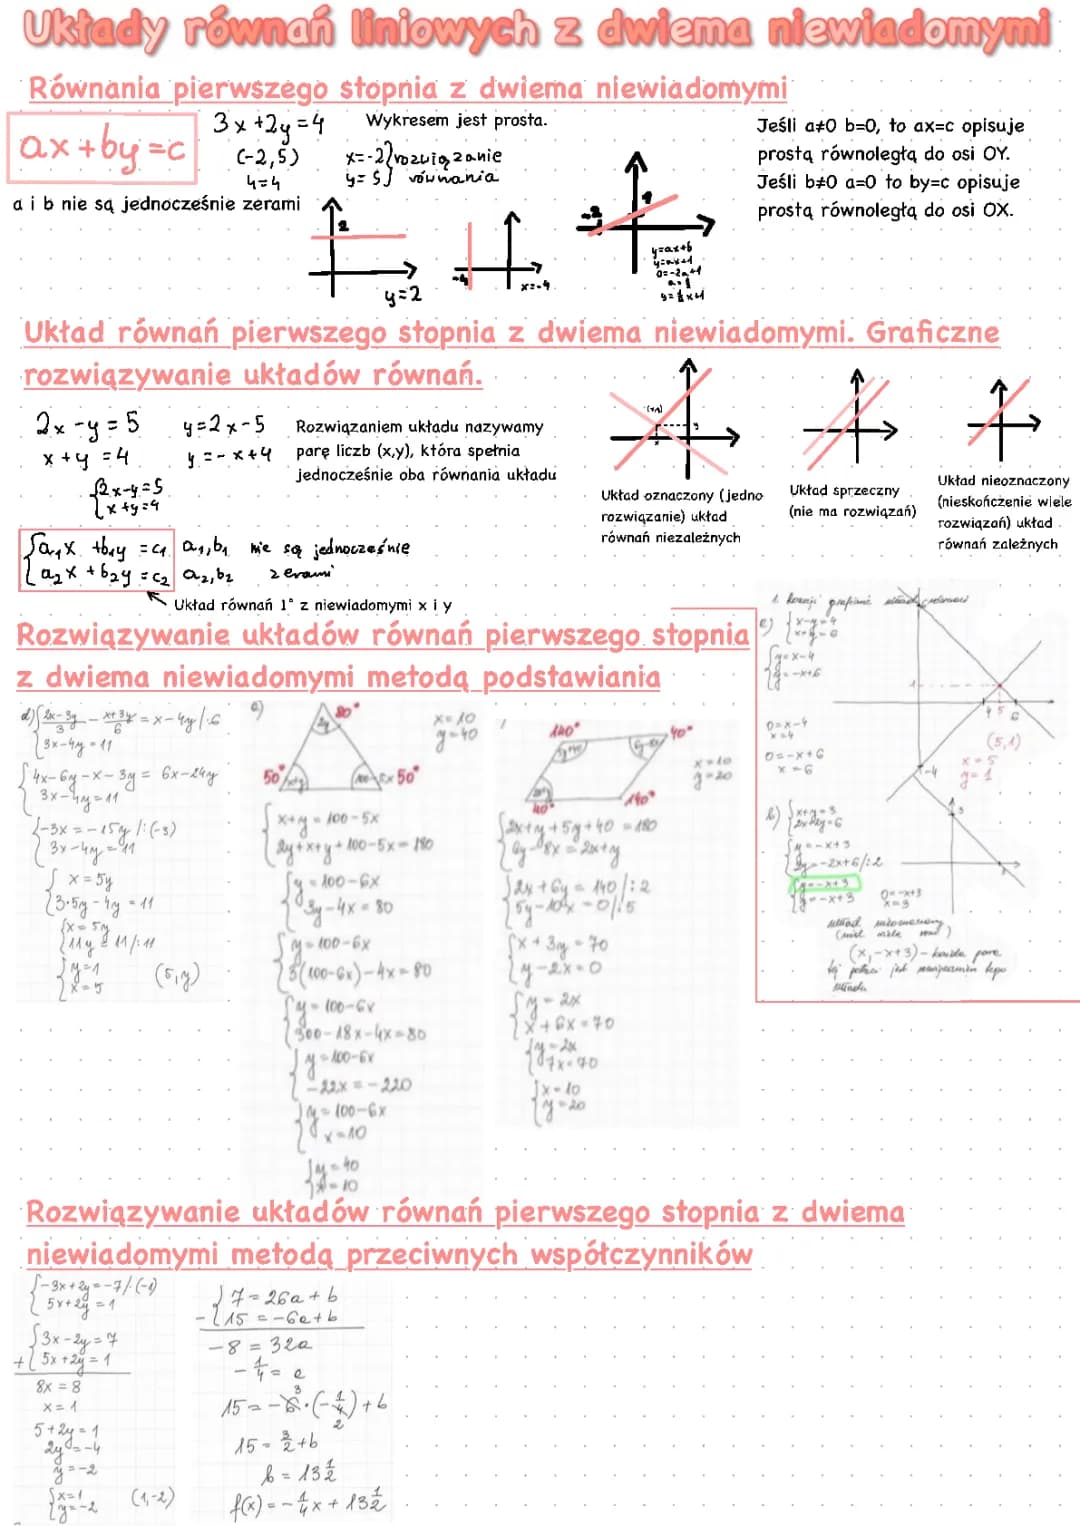 Układy równań liniowych z dwiema niewiadomymi
Równania pierwszego stopnia z dwiema niewiadomymi
ax+by=c
3x+2y=4
(-2,5)
4=4
Wykresem jest prosta.
x=-2} rozwiązanie
y=5} równania
a i b nie są jednocześnie zerami
Jeśli a≠0 b=0, to ax=c opisuje
prostą równoległą do osi OY.
Jeśli b≠0 a=0 to by=c opisuje
prostą równoległą do osi OX.
2
y=2
-4
x=-4
-2
1
y=ax+b
y=ax+1
0=-2a+1
y=½x+1
Układ równań pierwszego stopnia z dwiema niewiadomymi. Graficzne
rozwiązywanie układów równań.
2x-y=5
x+y=4
y=2x-5
y=-x+4
{2x-y=5
{x+y=4
Rozwiązaniem układu nazywamy
parę liczb (x,y), która spełnia
jednocześnie oba równania układu
Układ oznaczony (jedno
rozwiązanie) układ
równań niezależnych
Układ sprzeczny
(nie ma rozwiązań)
Układ nieoznaczony
(nieskończenie wiele
rozwiązań) układ
równań zależnych
{a₁x+b₁y=c₁ a₁,b₁ nie są jednocześnie
{a₂x+b₂y=c₂ a₂,b₂ zerami
Układ równań 1° z niewiadomymi x i y
Rozwiązywanie układów równań pierwszego stopnia
z dwiema niewiadomymi metodą podstawiania
d) {(2x-3y)/3 - (x+3y)/6 = x-4y /·6
{3x-4y=11
{4x-6y-x-3y=6x-24y
{3x-4y=11
{-3x=-15y /:(-3)
{3x-4y=11
{x=5y
{3·5y-4y=11
{x=5y
{11y=11/:11
{y=1
{x=5
80°
2y
50°
x+y
100-5x
50°
x=10
y=40
{x+y=100-5x
{2y+x+y+100-5x=180
{y=100-6x
{3y-4x=80
{y=100-6x
{3(100-6x)-4x=80
{y=100-6x
{300-18x-4x=80
{y=100-6x
{-22x=-220
{y=100-6x
{x=10
{y=40
{x=10
140°
40°
40°
140°
x=10
y=20
{2x+y+5y+40=180
{6y-8x=2x+y
{2x+6y=140/:2
{5y-10x=0/:5
{x+3y=70
{y-2x=0
{y=2x
{x+6x=70
{y=2x
{7x=70
{x=10
{y=20
e) {x-y=4
{x+y=6
{y=x-4
{y=-x+6
0=x-4
x=4
0=-x+6
x=6
1
4 5 6
-4
(5,1)
x=5
y=1
b) {x+y=3
{2x+2y=6
{y=-x+3
{2y=-2x+6/:2
{y=-x+3
{y=-x+3
0=-x+3
x=3
3
układ nieoznaczony
(x,-x+3) - każda para
tej postaci jest rozwiązaniem tego
układu
Rozwiązywanie układów równań pierwszego stopnia z dwiema
niewiadomymi metodą przeciwnych współczynników
{-3x+2y=-7/·(-1)
{5x+2y=1
{3x-2y=7
+{5x+2y=1
8x=8
x=1
5+2y=1
2y=-4
y=-2
{x=1
{y=-2 (1,-2)
{7=26a+b
-{15=-6a+b
-8=32a
-¼=a
15=-6·(-¼)+b
3
2
15=3/2+b
b=13½
f(x)=-¼x+13½